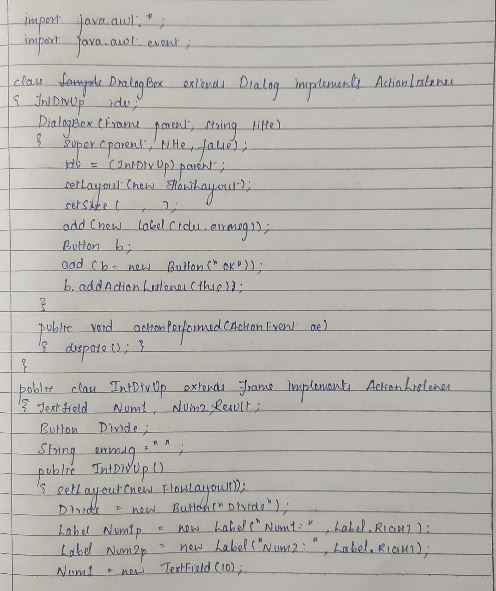 import java.awt.*;
import java.awt.event;
class DialogBox extends Dialog implements ActionListener
{ IntDivUp idu;
DialogBox (Frame parent, String title)
{ super (parent, title, false);
idu = (IntDivUp) parent;
setLayout (new FlowLayout);
setSize ( , );
add (new Label (idu.errmsg));
Button b;
add (b = new Button ("OK"));
b.addActionListener (this));
}
public void actionPerformed (ActionEvent ae)
{ dispose (); }
}
public class IntDivUp extends Frame implements ActionListener
{ TextField Num1, Num2, Result;
Button Divide;
String errmsg = " ";
public IntDivUp ()
{ setLayout (new FlowLayout());
Divide = new Button ("Divide");
Label Num1p = new Label ("Num1:", Label.RIGHT);
Label Num2p = new Label ("Num2:", Label.RIGHT);
Num1 = new TextField (10);